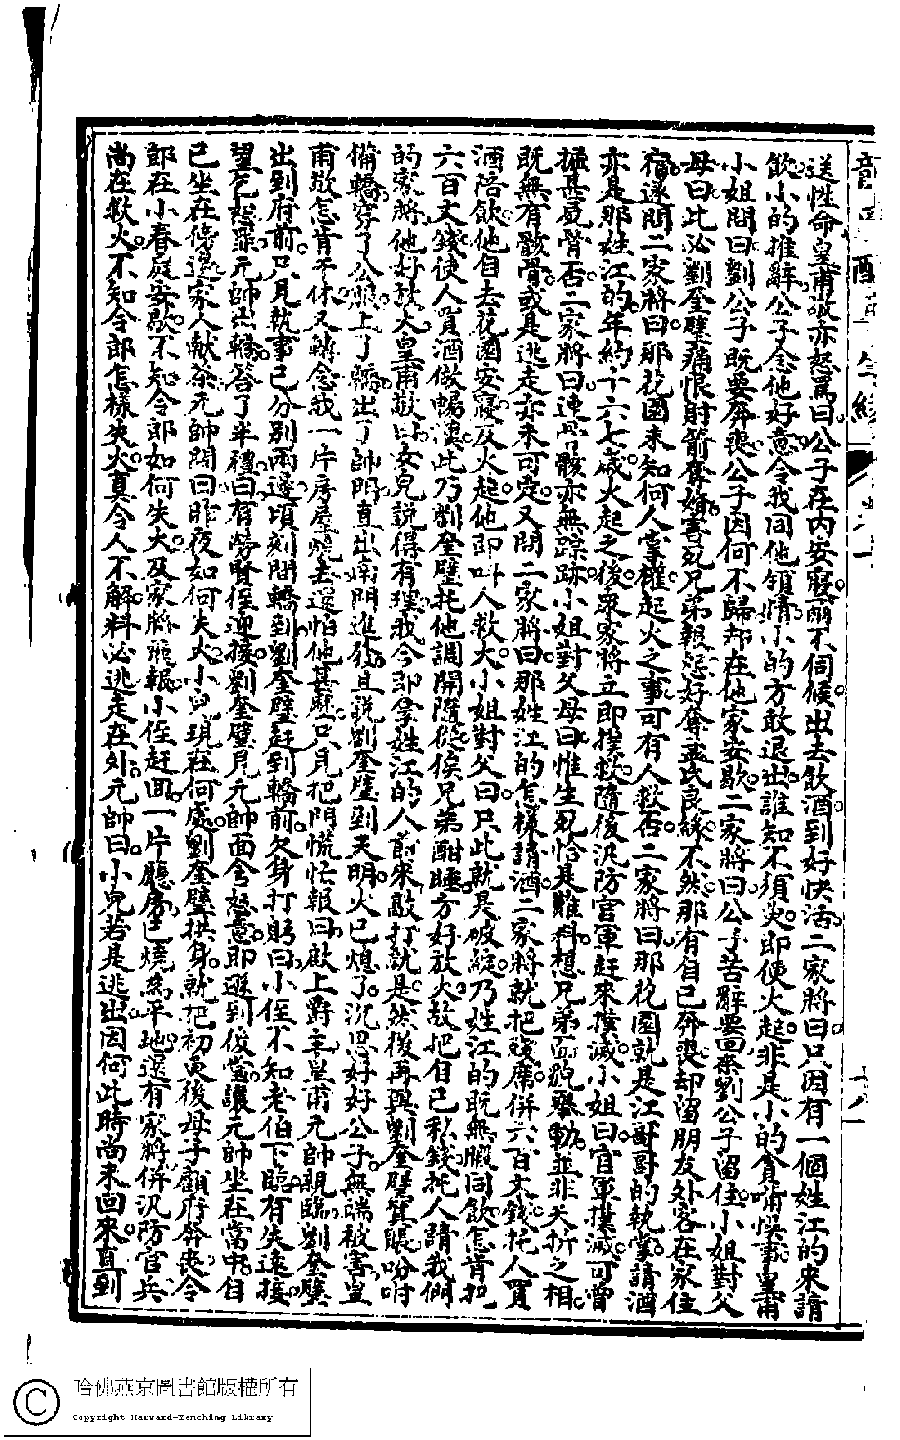 送性命皇甫敬亦怒罵曰公子在內安寢爾不伺候出去飲酒到好快活二家將曰只因有一個姓江的來請
飲小的推辭公子念他好意令我回他領情小的方敢退出誰知不須臾即便火起非是小的貪晡悞事皇甫
小姐問曰劉公子既要奔喪公子因何不歸却在他家安歇二家將曰公子苦辭要回奈劉公子留住小姐對父
母曰此必劉奎璧痛恨射箭奪婚害死兄弟報怨好奪孟氏良緣不然那有自己奔喪却留朋友外客在家住
宿遂問二家將曰那花園未知何人掌權起火之事可有人救否二家將曰那花園就是江哥哥的執掌請酒
亦是那姓江的年約十六七歲火起之後眾家將立即撲救隨後汛防官軍赶來撲滅小姐曰官軍撲滅可曾
掘其屍骨否二家將曰連骨骸亦無踪跡小姐對父母曰惟生死恰是難料想兄弟面貌舉動並非夭折之相
既無有骸骨或是逃走亦未可定又問二家將曰那姓江的怎樣請酒二家將就把設席併六百文錢托人買
酒陪飲他自去花園安寢及火起他即叫人救火小姐對父曰只此就是破綻乃姓江的既無暇同飲怎肯把
六百文錢使人買酒做暢漢此乃劉奎璧托他調開隨從俟兄弟酣睡方好放火故把自己私錢托人請我們
的家將他好放火皇甫敬曰女兒說得有理我今即拿姓江的人前來敲打就是然後再與劉奎璧算賬吩咐
備轎穿了公服上了轎出了帥府直出南門進發且說劉奎璧到天明火已熄了沉思好好公子無端被害豈
甫敬怎肯干休又轉念我一片房屋燒去還怕他甚麼只見把門慌忙報曰啟上爵主皇甫元帥親臨劉奎璧
出到府前只見執事已分別兩邊頃刻間轎到劉奎璧赶到轎前欠身打躬曰小侄不知老伯下臨有失遠接
望乞恕罪元帥出轎答了半禮曰有勞賢侄迎接劉奎璧見元帥面含怒意即遜到後堂讓元帥坐在當中自
己坐在傍邊家人献茶元帥問曰昨夜如何失火小兒現在何處劉奎璧拱身就把初更後母子顧府奔喪令
郎在小春庭安歇不知令郎如何失火及家將飛報小侄赶回一片廳房已燒為平地還有家將併汛防官兵
尚在救火不知令郎怎樣失火真令人不解料必逃走在外元帥曰小兒若是逃出因何此時尚未回來直到
哈佛燕京圖書館版權所有
Copyright Harvard-Yenching Library